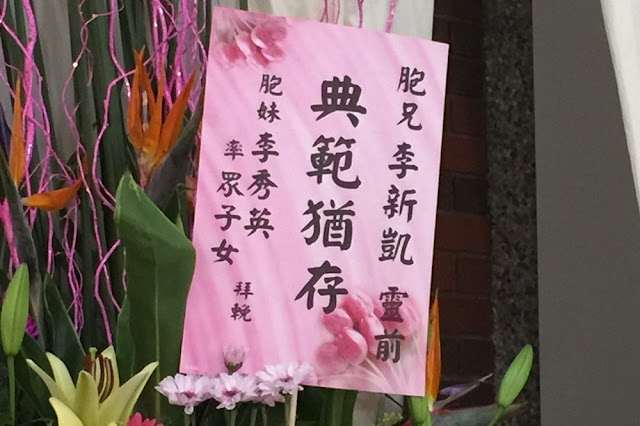 胞兄李新凱靈前
典範猶存
胞妹李秀英
率眾子女
拜輓